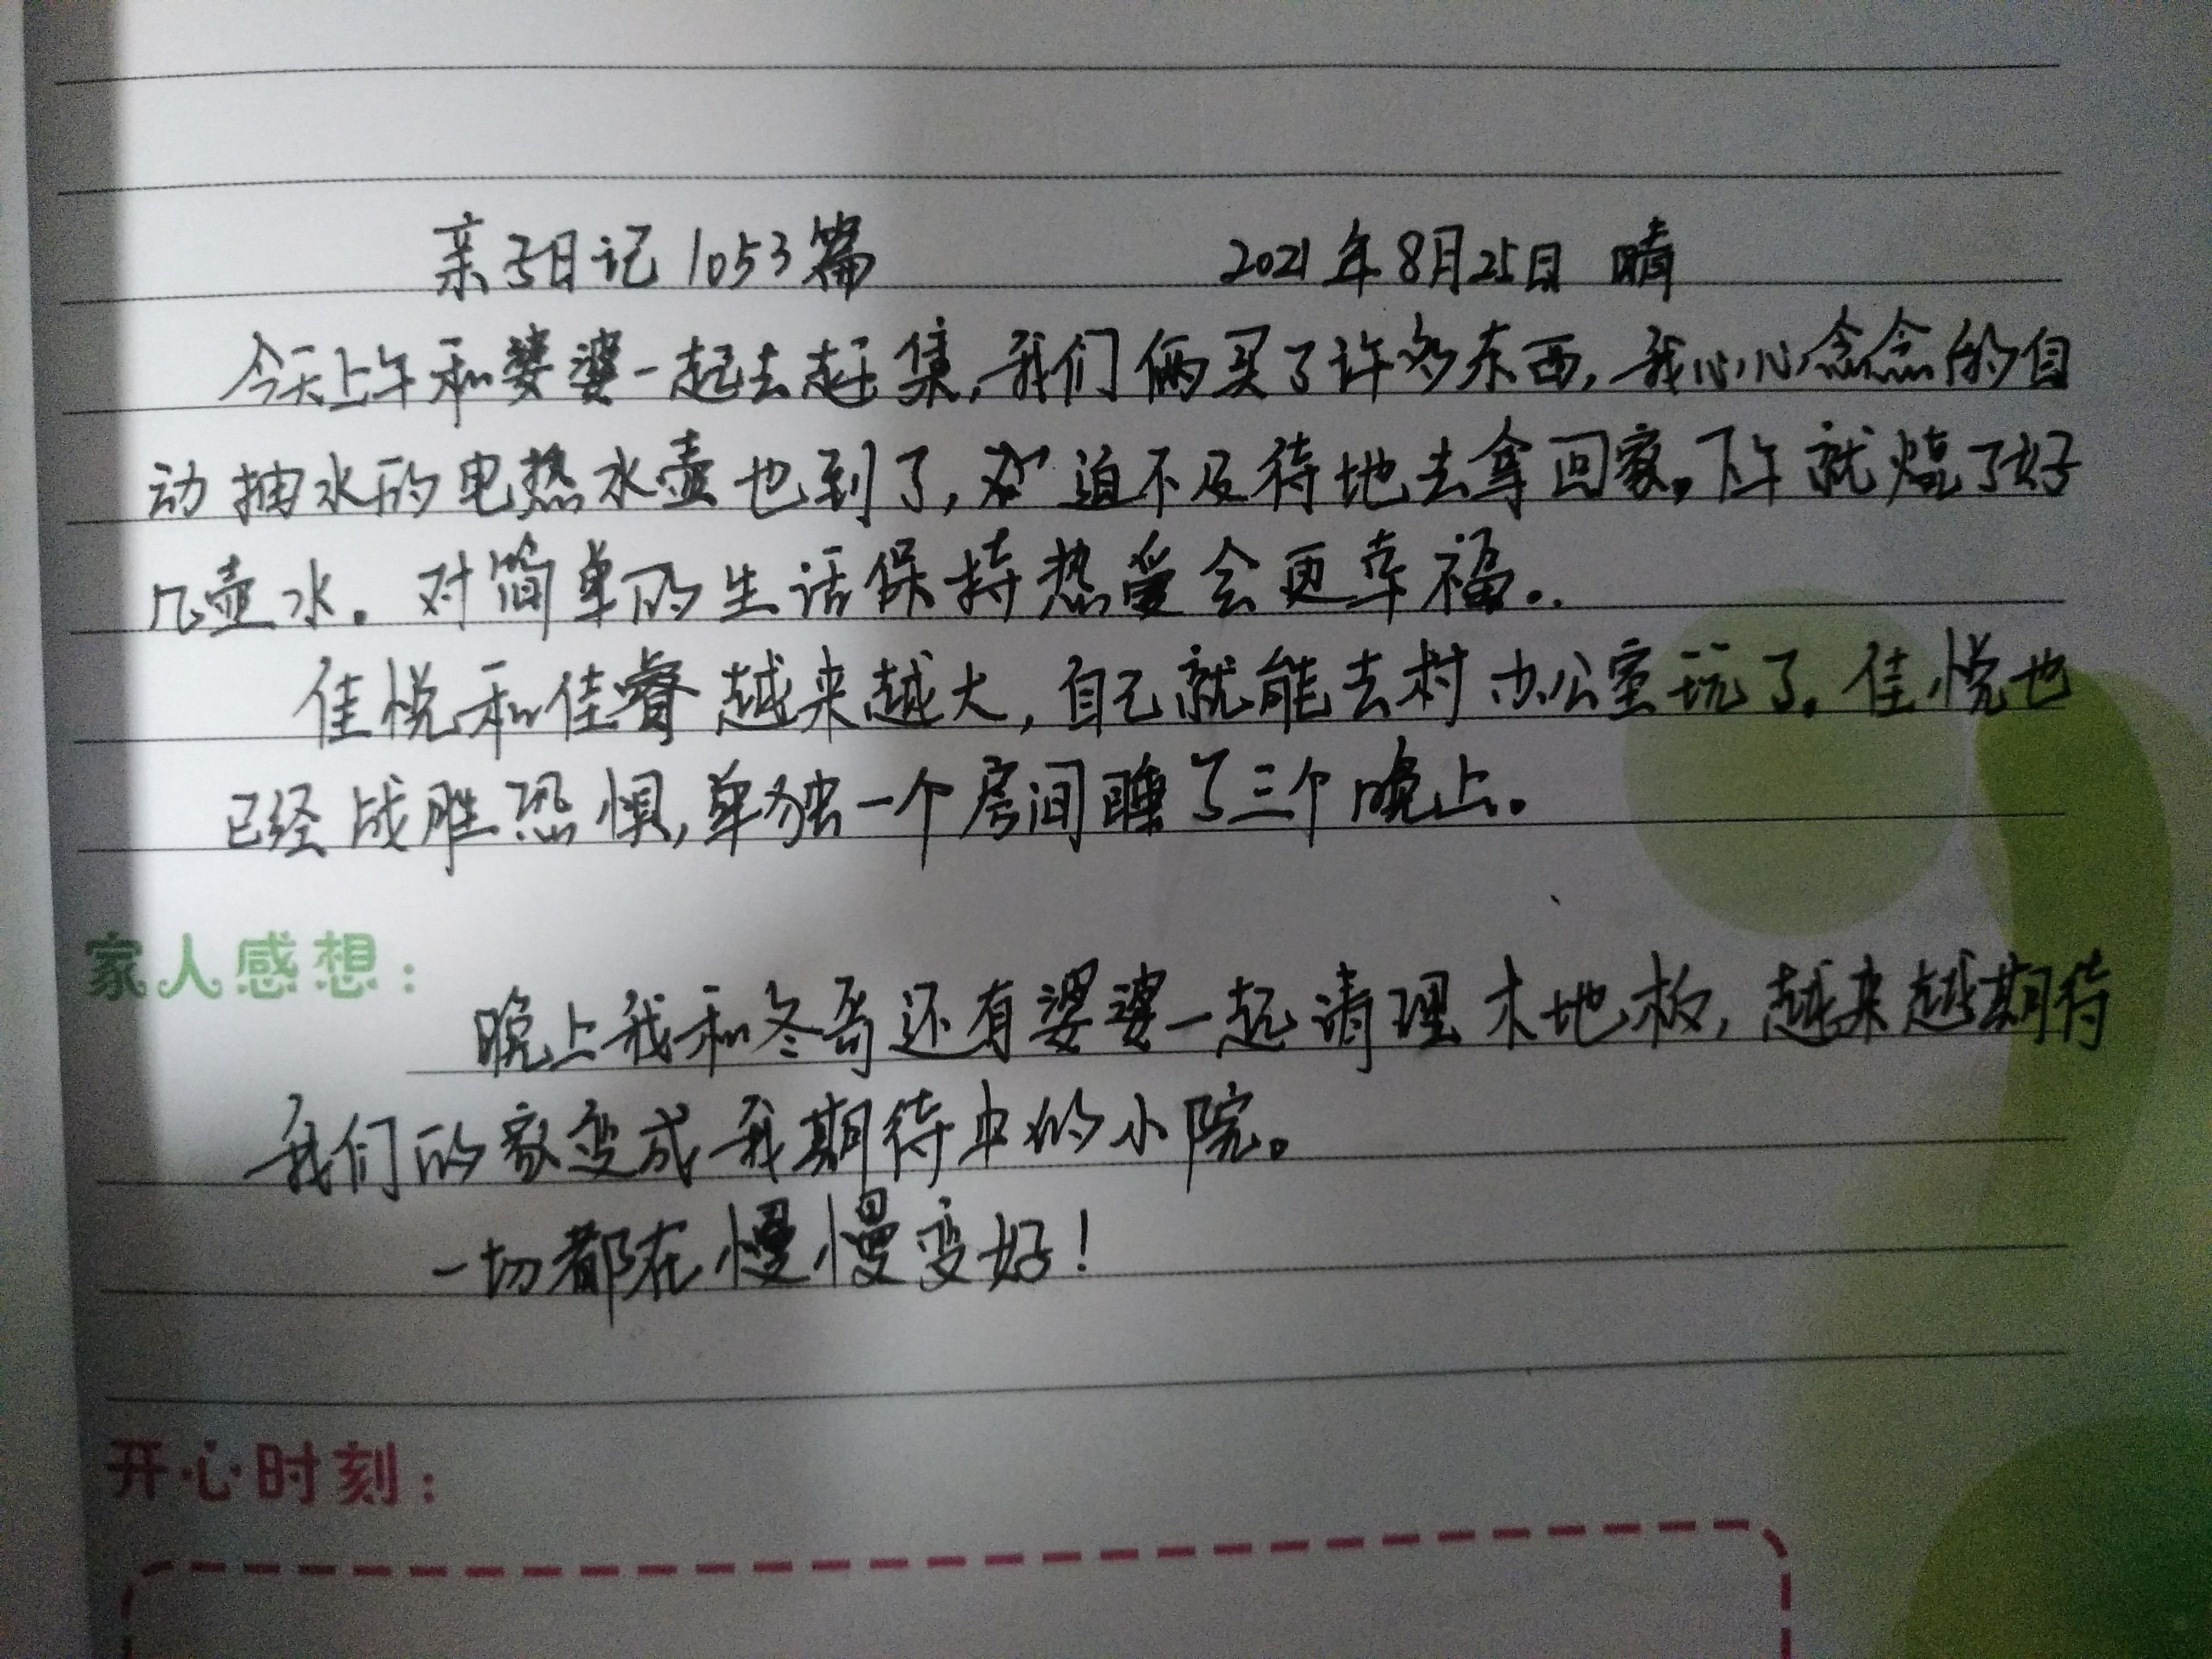 亲子日记1053篇 2021年8月25日 晴
今天上午和婆婆一起去赶集,我们俩买了许多东西,我心心念念的自
动抽水的电热水壶也到了,迫不及待地去拿回家。下午就烧了好
几壶水。对简单的生活保持热爱会更幸福..
佳悦和佳睿越来越大,自己就能去村办公室玩了。佳悦也
已经战胜恐惧,单独一个房间睡了三个晚上。
家人感想:
晚上我和冬哥还有婆婆一起清理木地板,越来越期待
我们的家变成我期待中的小院。
一切都在慢慢变好!
开心时刻: